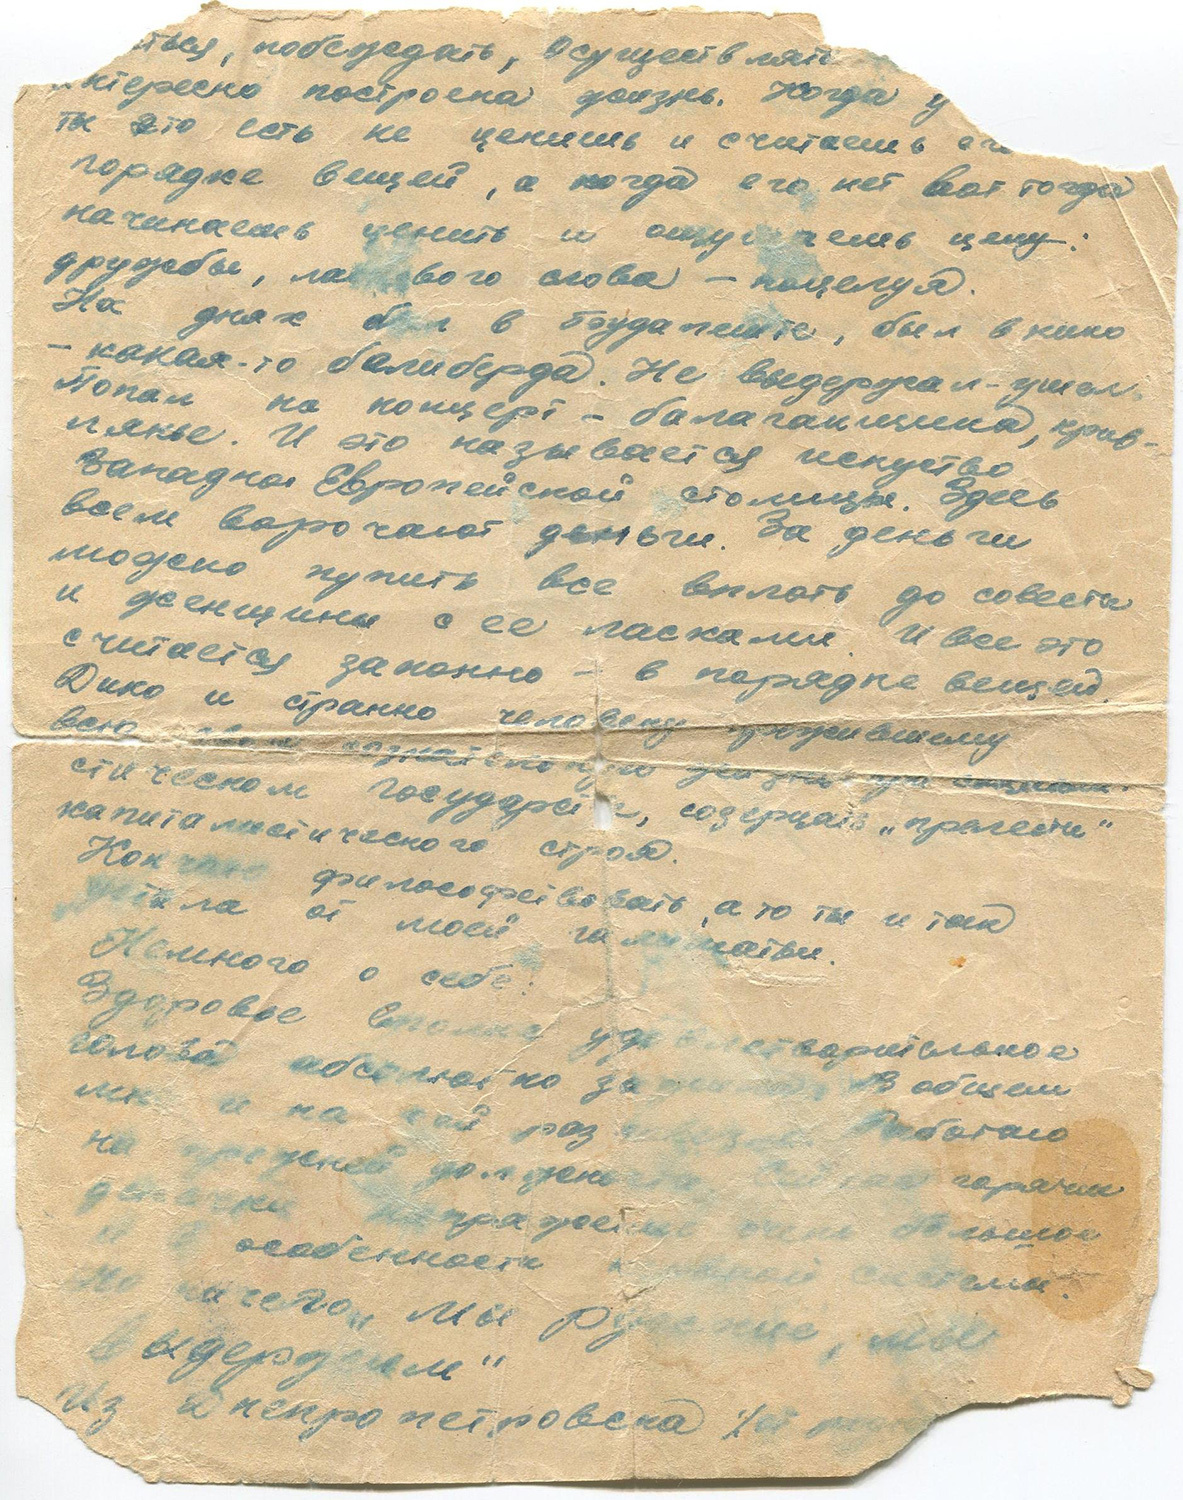 ться, побеждать, осуществлять
нтересно построена жизнь. Когда у
ты это есть не ценишь и считаешь его
порядке вещей, а когда его нет вот тогда
начинаешь ценить и ощущаешь цену:
дружбы, ласкового слова – поцелуя.
На днях был в Будапеште, был в кино
– какая-то балиберда. Не выдержал – ушел.
Попал на концерт – балаганщина, крив-
лянье. И это называется искуство
Западной Европейской столицы. Здесь
всем ворочают деньги. За деньги
можно купить все вплоть до совести
и женщины с ее ласками. И все это
считается законно – в порядке вещей.
Дико и странно человеку прожившему
всю свою сознательную жизнь при социали-
стическом государстве, созерцать „прелести"
капиталистического строя.
Кончаю философствовать, а то ты и так
устала от моей галиматьи.
Немного о себе:
Здоровье вполне удовлетворительное
голова абсолютно зажила. В общем
мне и на сей раз повезло. Работаю
на прежней должности. Сейчас горячие
денечки напряжение очень большое
и в особенности нервной системы.
Но ничего „Мы Русские, мы
выдержим"
Из Днепропетровска